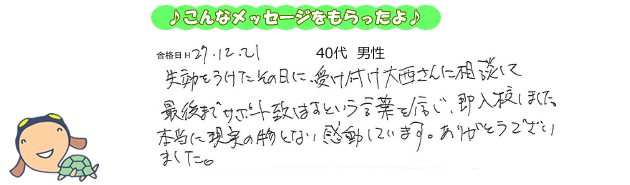 ♪こんなメッセージをもらったよ♪
合格日H27.12.21 40代 男性
失効をうけたその日に、受け付け大西さんに相談して
最後までサポート致しますという言葉を信じ、即入校しました。
本当に現実の物となり感動しています。ありがとうござい
ました。